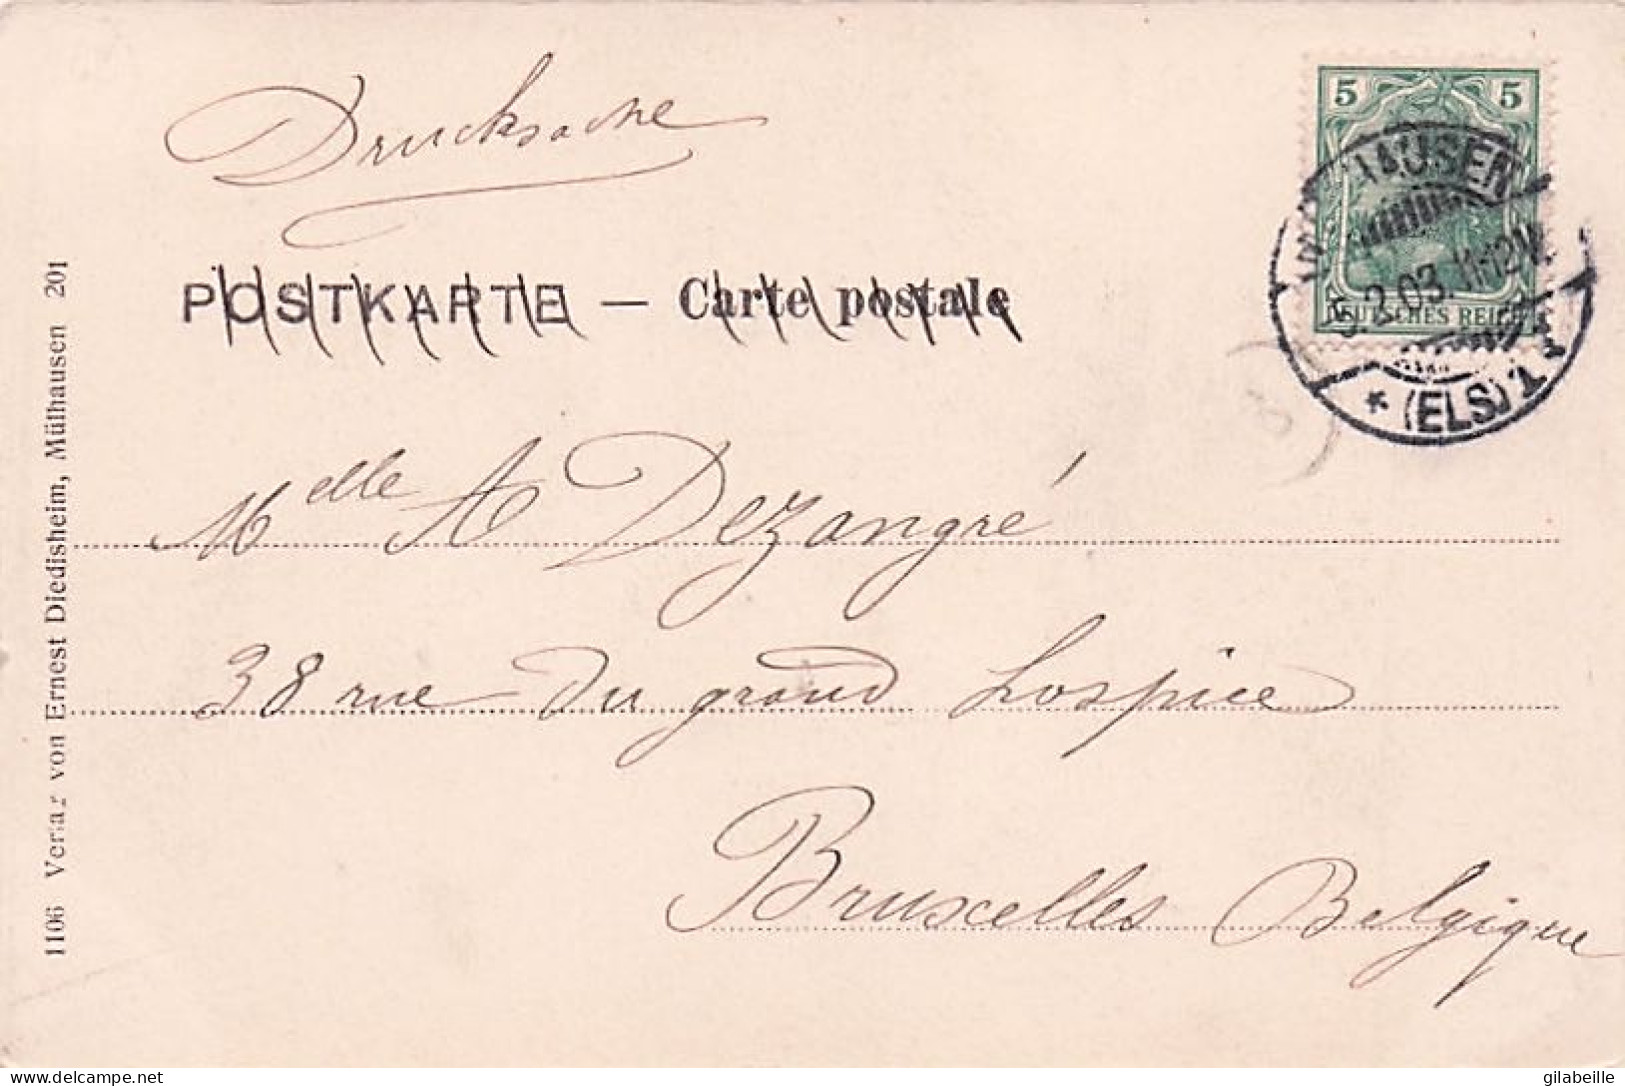 Drucksache
POSTKARTE — Carte postale
5 5
DEUTSCHES REICH
MÜLHAUSEN
5.2.03. 11-12V.
* (ELS) 1 *
Melle A Dezangré
38 rue du grand hospice
Bruxelles Belgique
1106 Verlag von Ernest Diedisheim, Mülhausen 201
delcampe.net
gilabeille